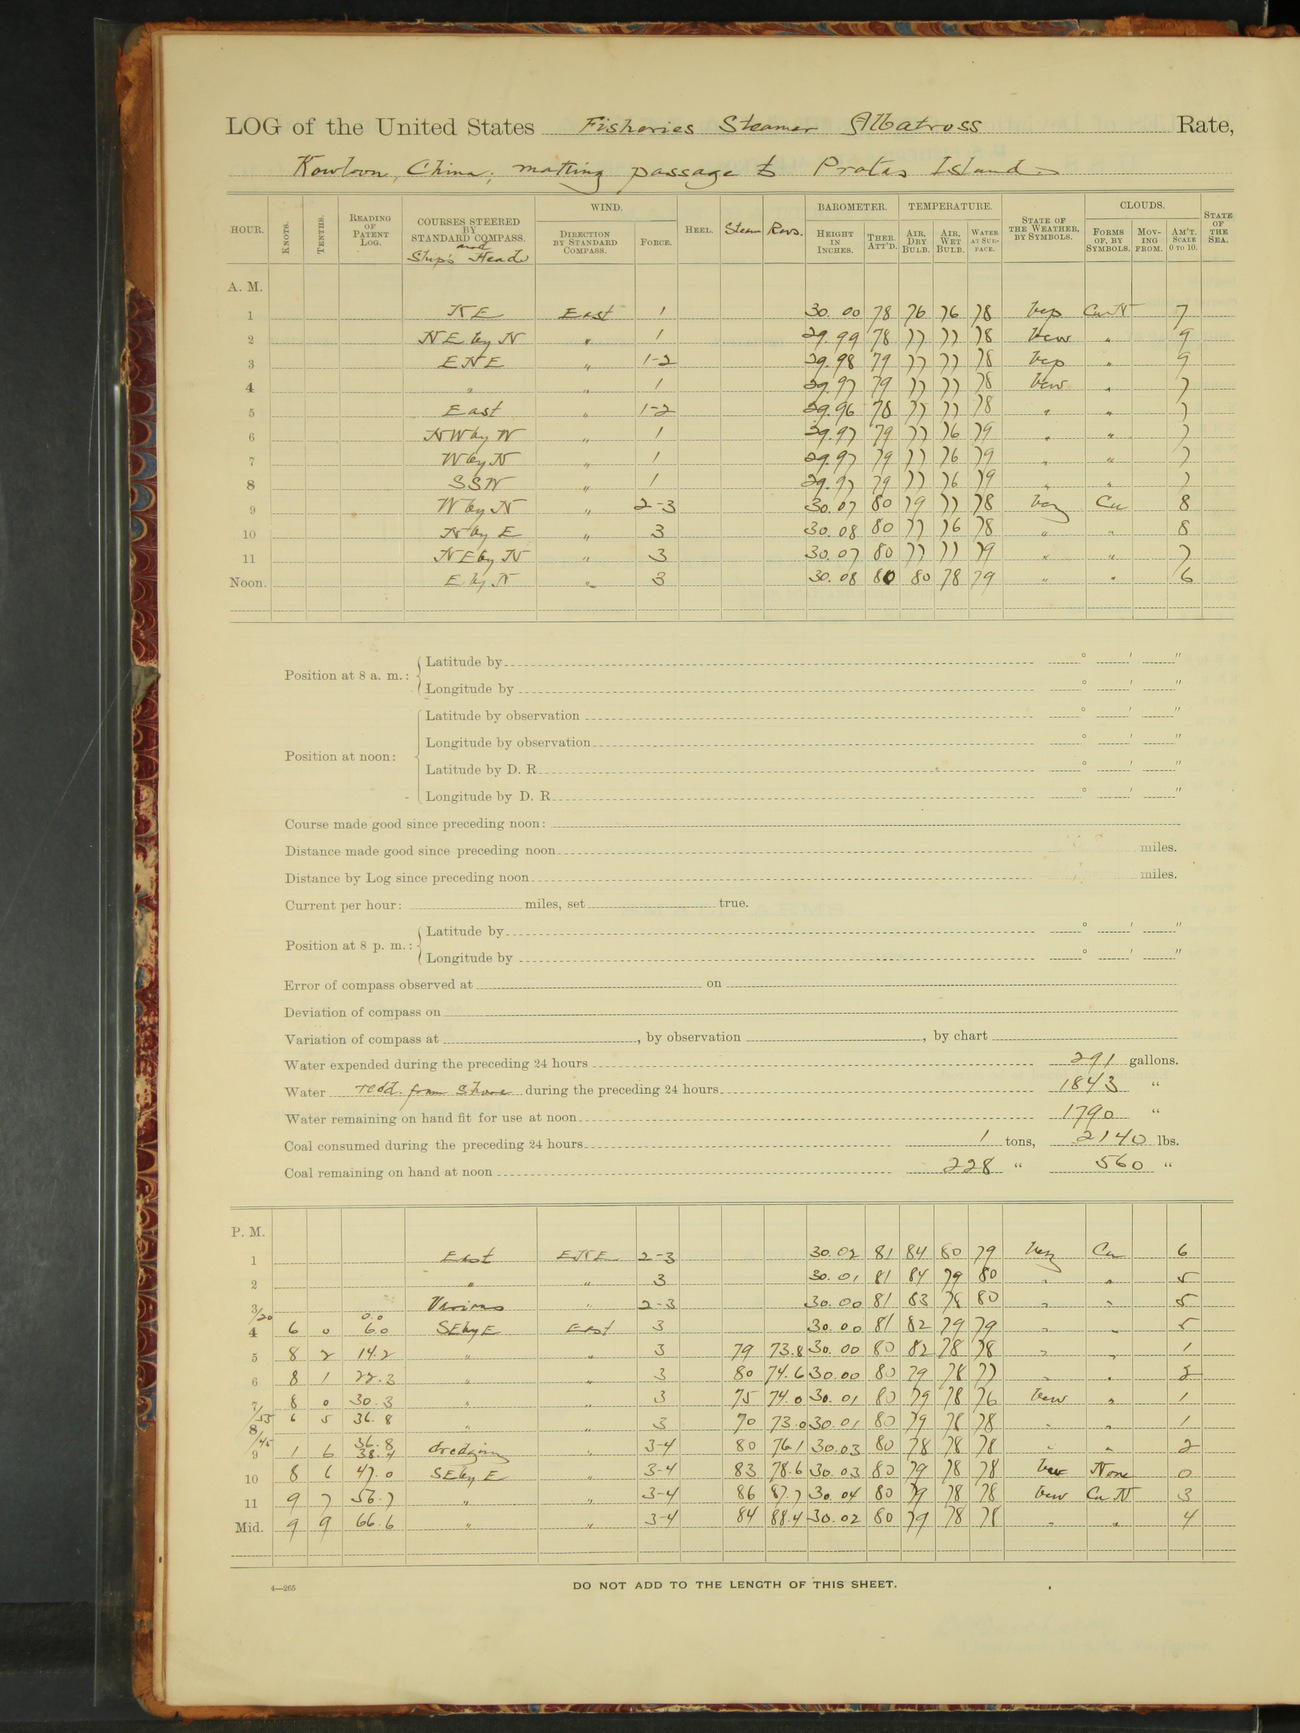 LOG of the United States Fisheries Steamer Albatross Rate,
Kowloon, China; making passage to Pratas Island.
HOUR. KNOTS. TENTHS. READING OF PATENT LOG. COURSES STEERED BY STANDARD COMPASS. and Ship's Head WIND. DIRECTION BY STANDARD COMPASS. FORCE. HEEL. Steam Revs. BAROMETER. HEIGHT IN INCHES. THER. ATT'D. TEMPERATURE. AIR, DRY BULB. AIR, WET BULB. WATER AT SURFACE. STATE OF THE WEATHER, BY SYMBOLS. CLOUDS. FORMS OF, BY SYMBOLS. MOVING FROM. AM'T. SCALE 0 TO 10. STATE OF THE SEA.
A. M.
1 NE East 1 30.00 78 76 76 78 bcp Cu-N 7
2 NE by N " 1 29.99 78 77 77 78 bcw " 9
3 ENE " 1-2 29.98 79 77 77 78 bcp " 9
4 " " 1 29.97 79 77 77 78 bcw " 7
5 East " 1-2 29.96 78 77 77 78 " " 7
6 NW by W " 1 29.97 79 77 76 79 " " 7
7 W by N " 1 29.97 79 77 76 79 " " 7
8 SSW " 1 29.97 79 77 76 79 " " 7
9 W by N " 2-3 30.07 80 79 77 78 bcz Cu 8
10 N by E " 3 30.08 80 77 76 78 " " 8
11 NE by N " 3 30.07 80 77 77 79 " " 7
Noon. E by N " 3 30.08 80 80 78 79 " " 6
Position at 8 a. m.: Latitude by ° ' "
Longitude by ° ' "
Latitude by observation ° ' "
Position at noon: Longitude by observation ° ' "
Latitude by D. R. ° ' "
Longitude by D. R. ° ' "
Course made good since preceding noon:
Distance made good since preceding noon miles.
Distance by Log since preceding noon miles.
Current per hour: miles, set true.
Position at 8 p. m.: Latitude by ° ' "
Longitude by ° ' "
Error of compass observed at on
Deviation of compass on
Variation of compass at , by observation , by chart
Water expended during the preceding 24 hours 291 gallons.
Water recd. from Shore during the preceding 24 hours 1843 "
Water remaining on hand fit for use at noon 1790 "
Coal consumed during the preceding 24 hours 1 tons, 2140 lbs.
Coal remaining on hand at noon 228 " 560 "
P. M.
1 East ENE 2-3 30.02 81 84 80 79 bcz Cu 6
2 " " 3 30.01 81 84 79 80 " " 5
3/20 0.0 Various " 2-3 30.00 81 83 78 80 " " 5
4 6 0 6.0 SE by E East 3 30.00 81 82 79 79 " " 5
5 8 2 14.2 " " 3 79 73.8 30.00 80 82 78 78 " " 1
6 8 1 22.3 " " 3 80 74.6 30.00 80 79 78 77 " " 2
7 8 0 30.3 " " 3 75 74.0 30.01 80 79 78 76 bcw " 1
/55 8 6 5 36.8 " " 3 70 73.0 30.01 80 79 78 78 " " 1
/45 9 1 6 36.8 38.4 dredging " 3-4 80 76.1 30.03 80 78 78 78 " " 2
10 8 6 47.0 SE by E " 3-4 83 78.6 30.03 80 79 78 78 None 0
11 9 7 56.7 " " 3-4 86 87.7 30.04 80 79 78 78 bcw Cu N 3
Mid. 9 9 66.6 " " 3-4 84 88.4 30.02 80 79 78 78 " " 4
4—265
DO NOT ADD TO THE LENGTH OF THIS SHEET.